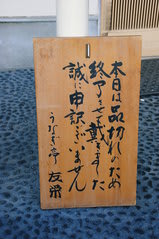 本日は品切れのため
終了させて戴きました
誠に申訳ございません
うなぎ亭 友栄